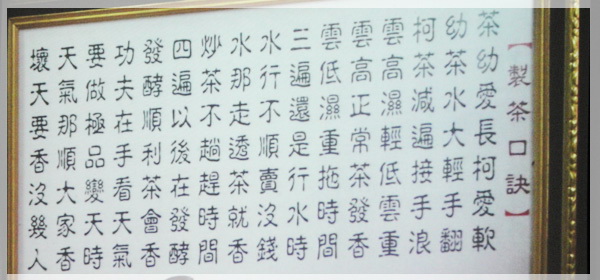 【製茶口訣】
茶幼愛長柯愛軟
幼茶水大輕手翻
柯茶減遍接手浪
雲高濕輕低雲重
雲高正常茶發香
雲低濕重拖時間
三遍還是行水時
水行不順賣沒錢
水那走透茶就香
炒茶不趟趕時間
四遍以後在發酵
發酵順利茶會香
功夫在手看天氣
要做極品變天時
天氣那順大家香
壞天要香沒幾人